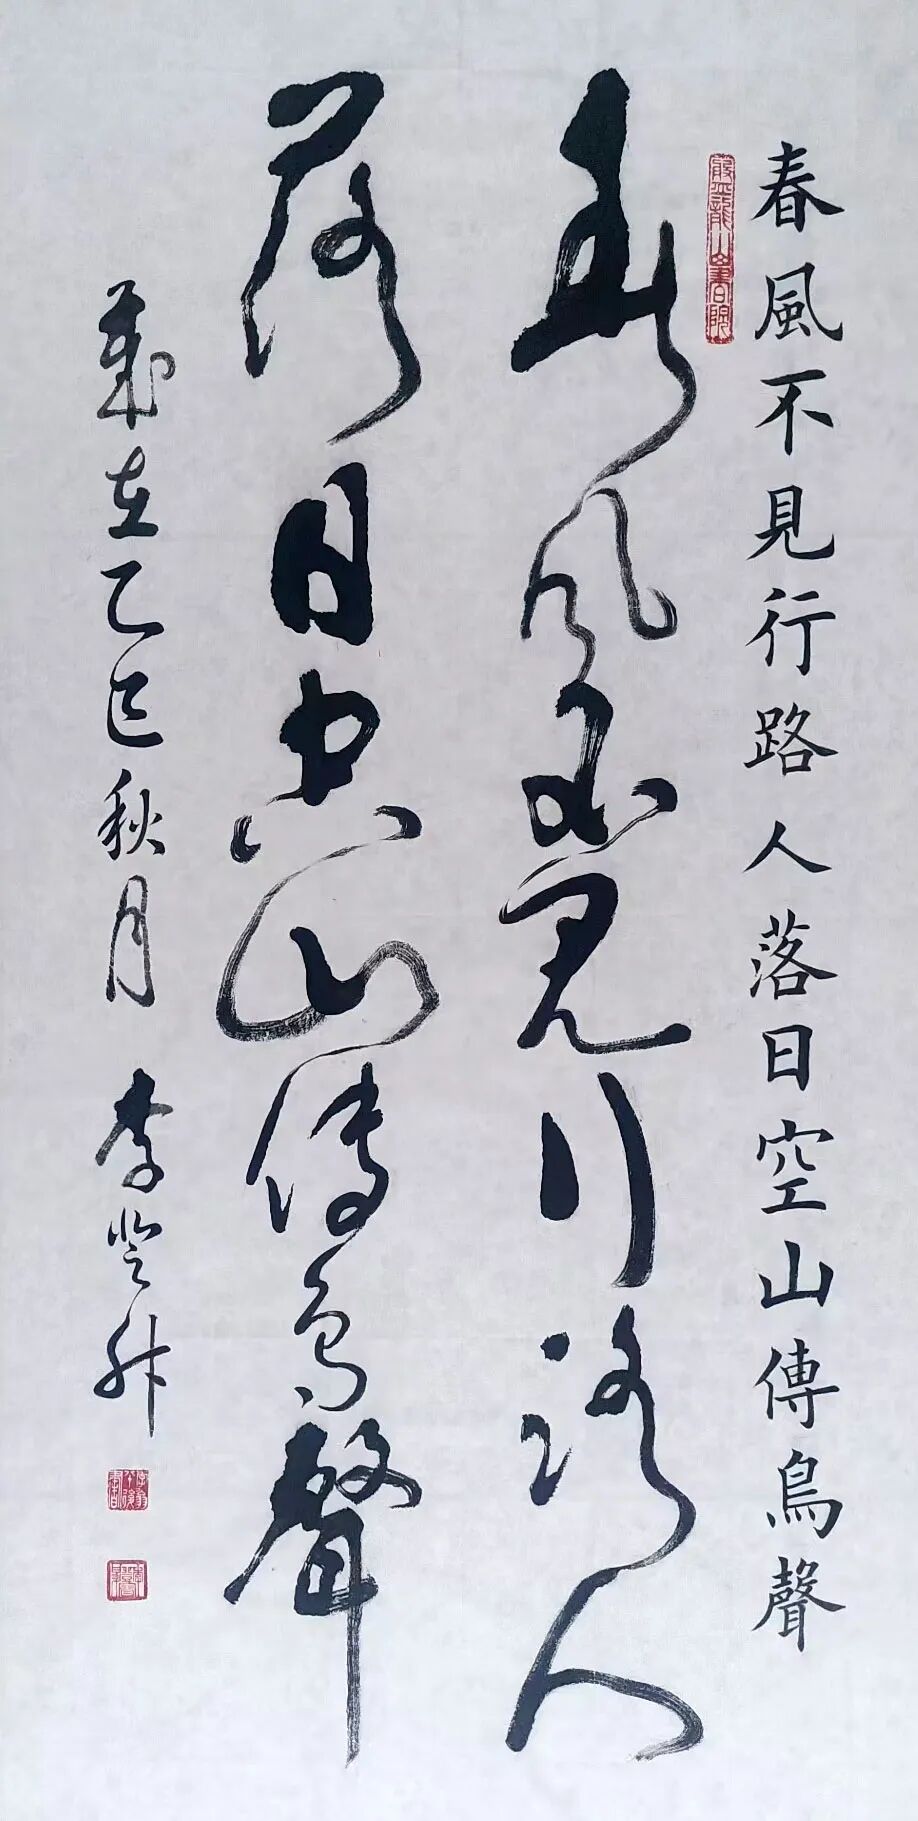 春風不見行路人落日空山傳鳥聲
春风不見行路人
落日空山傳鸟聲
歲在乙巳秋月 李登升